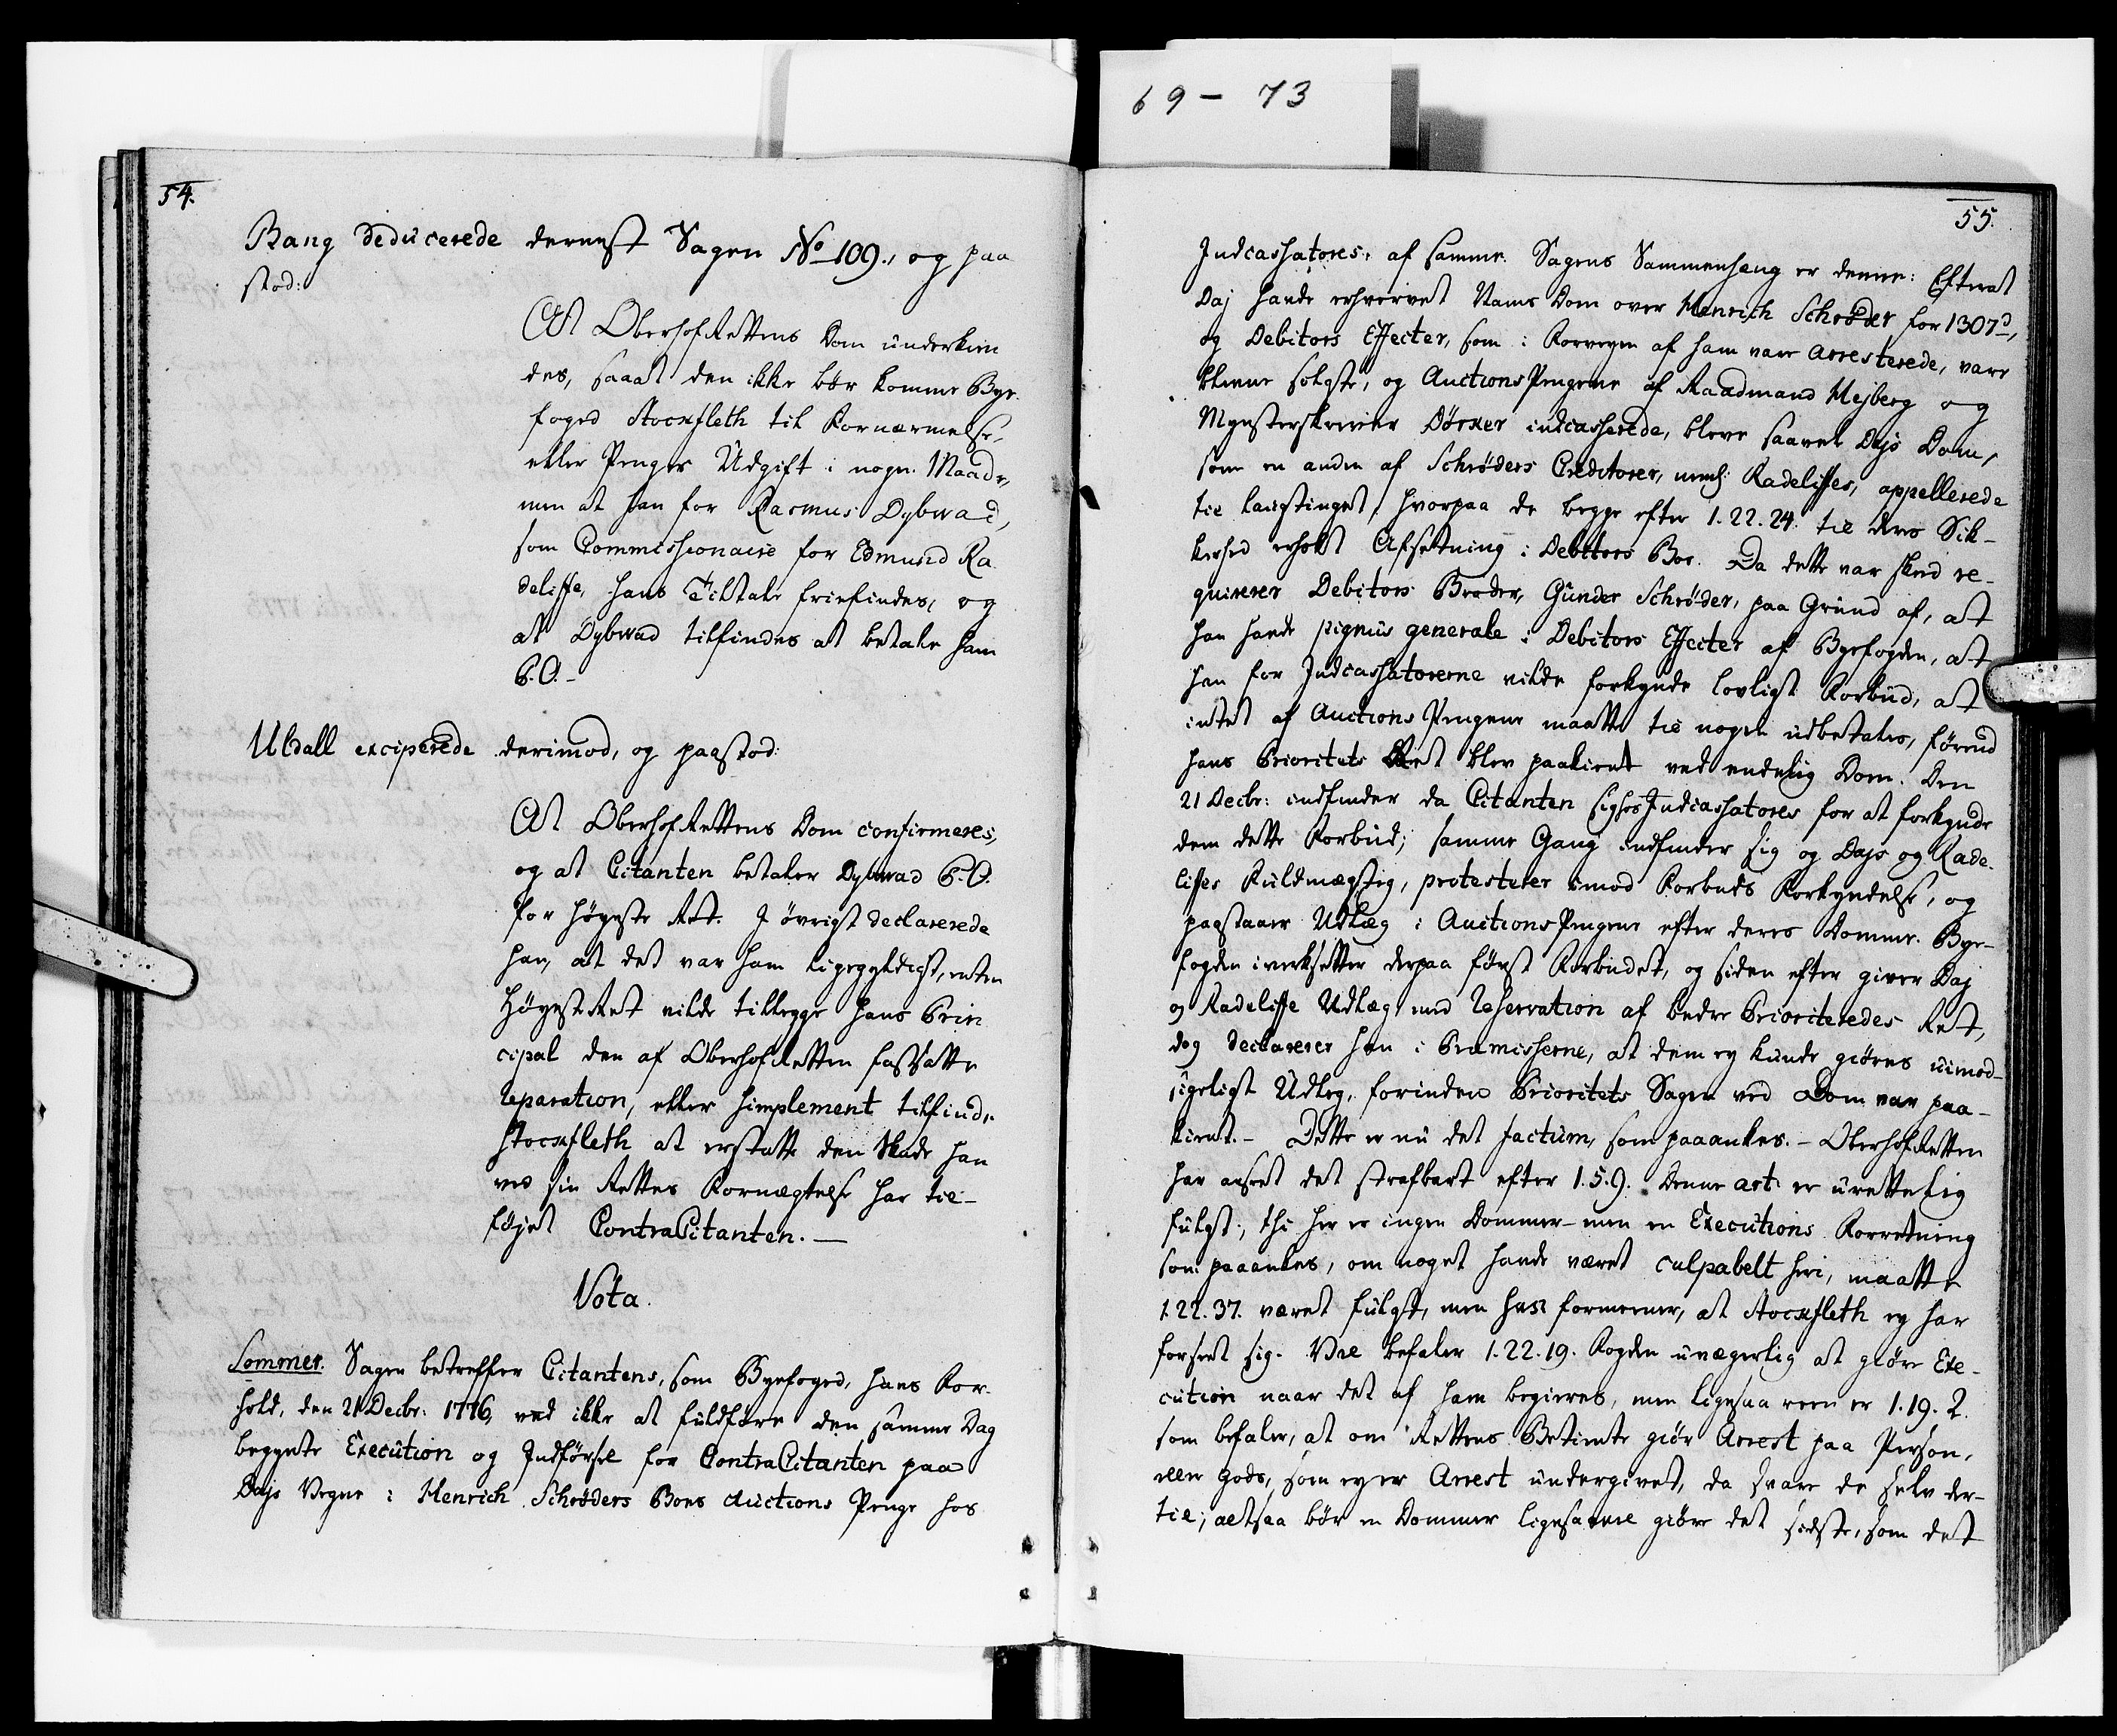 69 - 73
54.
Bang deducerede dernest Sagen No 109., og paa
stod:
At OberhofRettens Dom underkien
des, saaat den ikke bør komme Bye-
foged Stocxfleth til Fornærmelse,
eller Penges Udgift i nogen Maade,
men at han for Rasmus Dybwad,
som Commissionaire for Edmund Ra
deliffe, hans Tiltale friefindes, og
at Dybwad tilfindes at betale ham
P.O.-
Uldall exciperede derimod, og paastod:
At OberhofRettens Dom confirmeres,
og at Citanten betaler Dybwad P.O.
for Høyeste Ret. I øvrigt declarerede
han, at det var ham ligegyldigt, enten
HøyesteRet vilde tillegge hans Prin
cipal den af OberhofRetten fastsatte
reparation, eller simplement tilfinde
Stocxfleth at erstatte den Skade han
ved sin Rettes Fornægtelse har til-
føjet ContraCitanten. —
Vota.
Sommer. Sagen betreffer Citantens, som Byefoged, hans For-
hold, den 21 Decbr: 1776, ved ikke at fuldføre den samme Dag
begynte Execution og Indførsel for ContraCitanten paa
Dajs Vegne i Henrich Schrøders Boes Auctions Penge hos
55.
Indcassatores, af samme. Sagens Sammenhæng er denne: Efterat
Daj havde erhvervet Nams Dom over Henrich Schrøder for 1307 d,
og Debitors Effecter, som i Forvejen af ham vare arresterede, vare
blevne solgte, og AuctionsPengene af Raadmand Mejberg og
Mynsterskriver Dörxer indcasserede, bleve saavel Dajs Dom,
som en anden af Schrøders Creditorer, neml: Radeliffes, appellerede
til laugtinget, hvorpaa de begge efter 1.22.24. til deres Sik-
kerhed erholdt Afsetning i Debitors Boe. Da dette var skeed re-
quirerer Debitors Broder, Gunder Schrøder, paa Grund af, at
han havde pignus generale i Debitors Effecter af Byefogden, at
han for Indcassatorerne vilde forkynde lovligt Forbud, at
intet af Auctions Pengene maatte til nogen udbetales, førend
hans Prioritets Ret blev paakient ved endelig Dom. Den
21 Decbr: indfinder da Citanten sig hos Indcassatores for at forkynde
dem dette Forbud; samme Gang indfinder sig og Dajs og Rade-
liffes Fuldmægtig, protesterer imod Forbuds Forkyndelse, og
paastaaer Udlæg i AuctionsPengene efter deres Domme. Bye-
fogden iverksetter derpaa først Forbudet, og siden efter giver Daj
og Radeliffe Udlæg med Reservation af bedre Prioriteredes Ret,
dog declarerer han i Præmisserne, at dem ey kunde giøres uimod-
sigeligt Udleg, forinden Prioritets Sagen ved Dom var paa-
kient. - Dette er nu det factum, som paaankes. - OberhofRetten
har anseet det strafbart efter 1.5.9. Denne art: er urettelig
fulgt, thi her er ingen Dommer- men en Executions Forretning
som paaankes, om noget havde været culpabelt heri, maatte
1.22.37. været fulgt, men hast formeener, at Stocxfleth ey har
forseet sig. Vel befaler 1.22.19. Fogden uvægerlig at giøre Exe-
cution naar det af ham begieres, men ligesaa reen er 1.19.2.
som befaler, at om Rettens Betiente giør Arrest paa Person,
eller gods, som ey er Arrest undergivet, da svare de selv der-
til; altsaa bør en Dommer ligesaavel giøre det sidste, som det